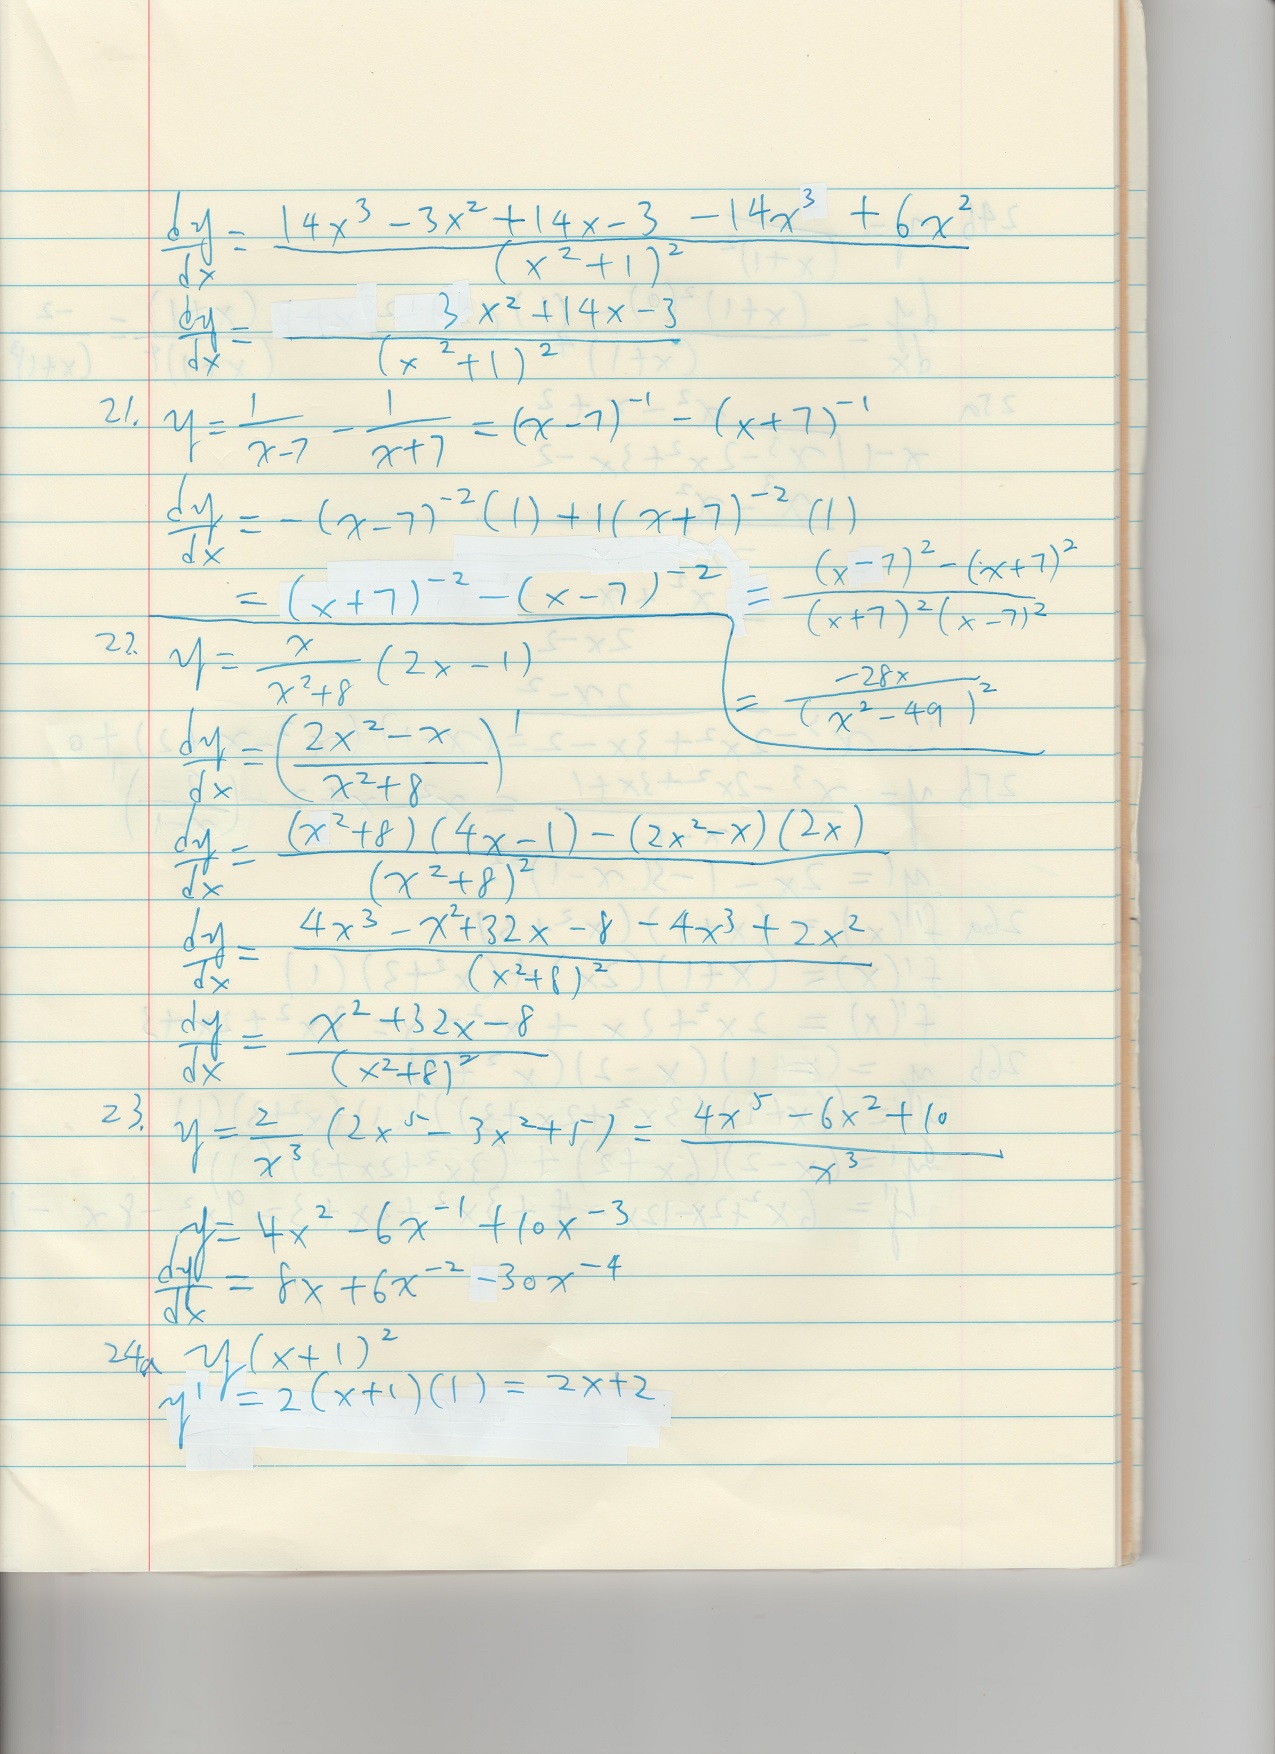 dy/dx = (14x³ - 3x² + 14x - 3 - 14x³ + 6x²)/(x²+1)²
dy/dx = (3x² + 14x - 3)/(x²+1)²
21. y = 1/(x-7) - 1/(x+7) = (x-7)⁻¹ - (x+7)⁻¹
dy/dx = -(x-7)⁻²(1) + 1(x+7)⁻²(1)
= (x+7)⁻² - (x-7)⁻² = ((x-7)² - (x+7)²)/((x+7)²(x-7)²)
= -28x/(x²-49)²
22. y = x/(x²+8) (2x-1)
dy/dx = ((2x²-x)/(x²+8))'
dy/dx = ((x²+8)(4x-1) - (2x²-x)(2x))/(x²+8)²
dy/dx = (4x³ - x² + 32x - 8 - 4x³ + 2x²)/(x²+8)²
dy/dx = (x² + 32x - 8)/(x²+8)²
23. y = 2/x³ (2x⁵ - 3x² + 5) = (4x⁵ - 6x² + 10)/x³
y = 4x² - 6x⁻¹ + 10x⁻³
dy/dx = 8x + 6x⁻² - 30x⁻⁴
24a y(x+1)²
y' = 2(x+1)(1) = 2x+2